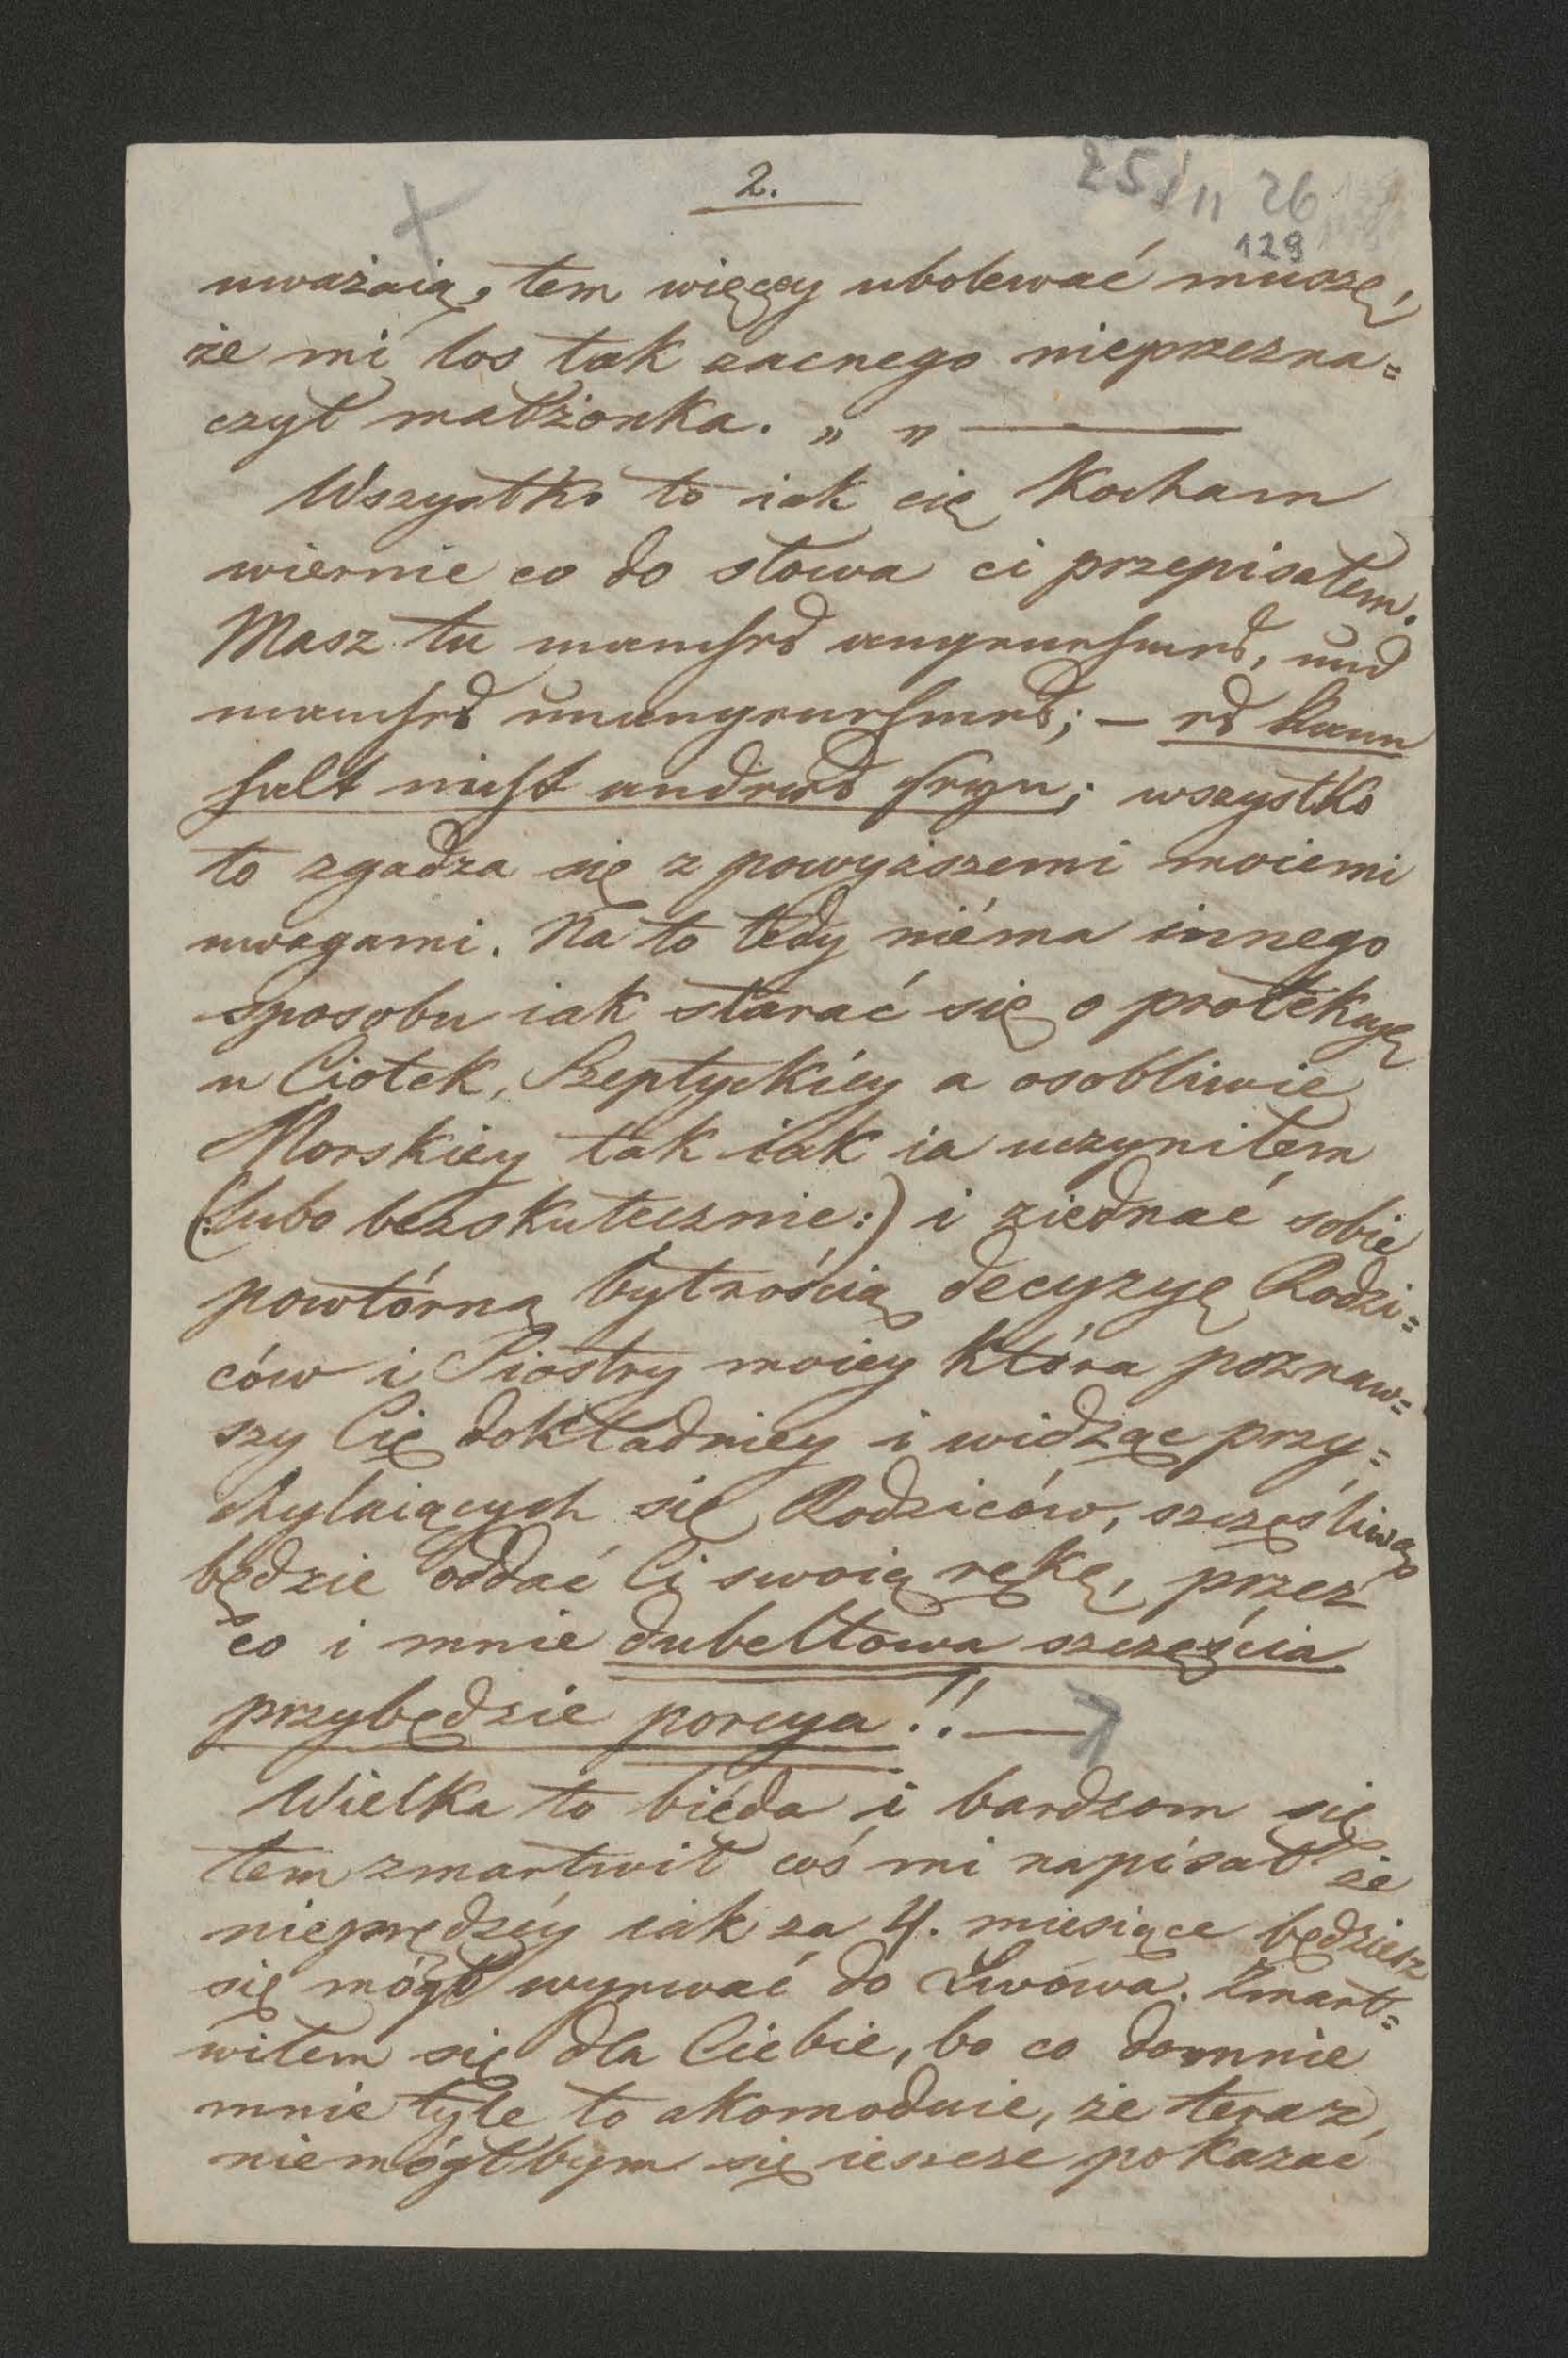 2.
25/II 26
129
uważaią, tem więcęy ubolewać muszę,
że mi los tak zacnego nieprzezna=
czył małżonka. „ „ —
Wszystko to iak cię Kocham
wiernie co do słowa ci przepisałem.
Masz tu manches angenehmes, und
manches unangenehmes; — es kann
halt nicht anders seyn; wszystko
to zgadza się z powyższemi moiemi
uwagami. Na to tedy niéma innego
sposobu iak starać się o protekcyę
u Ciotek, Szeptyckiéy a osobliwie
Morskiey tak iak ia uczyniłem
(:lubo bezskutecznie:) i ziednać sobie
powtórną bytnością decyzyę Rodzi=
ców i Siostry moiey która poznaw=
szy Cię dokładniey i widząc przy=
chylaiących się Rodziców, szczęśliwą
będzie oddać Ci swoią rękę, przez
co i mnie dubeltowa szczęścia
przybędzie porcya!! —
Wielka to biéda i bardzom się
tem zmartwił coś mi napisał że
nieprędzéy iak za 4. miesiące będziesz
się mógł wyrwać do Lwowa. Zmart=
wiłem się dla Ciebie, bo co domnie
mnie tyle to akomoduie, że teraz
niemógłbym się ieszcze pokazać